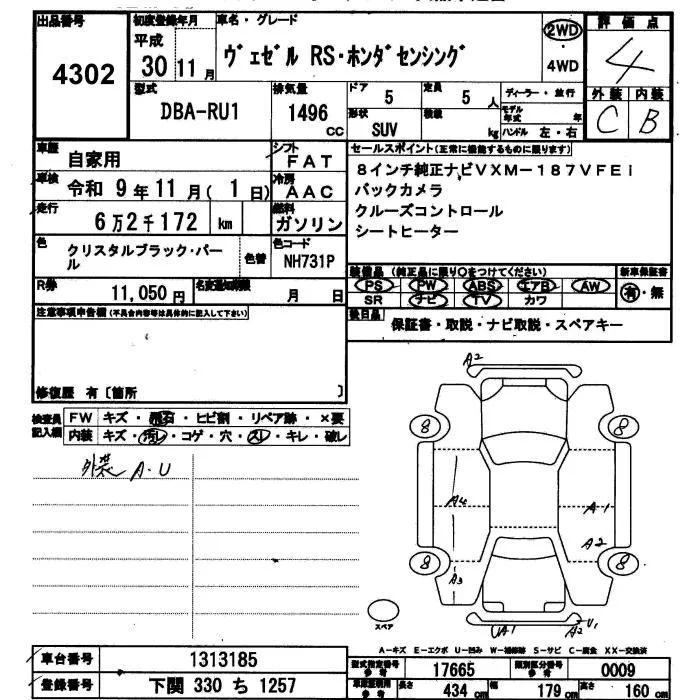 出品番号
4302
初度登録年月
平成
30 11 月
車名・グレード
ヴェゼル RS・ホンダセンシング
2WD
・
4WD
評価点
4
外装 内装
C B
型式
DBA-RU1
排気量
1496
CC
ドア
5
定員
5 人
形状
SUV
積載
kg
ディーラー・並行
モデル年式 年
ハンドル 左・右
車歴
自家用
シフト
FAT
車検
令和 9年11月(1日)
冷房
AAC
走行
6万2千172 km
燃料
ガソリン
色
クリスタルブラック・パール
色替
色コード
NH731P
R券
11,050円
名変通知期限
月 日
セールスポイント(正常に機能するものに限ります)
8インチ純正ナビVXM-187VFEi
バックカメラ
クルーズコントロール
シートヒーター
装備品(純正品に限り○をつけてください)
PS PW ABS エアB AW
SR ナビ TV カワ
新車保証書
有・無
後日品
保証書・取説・ナビ取説・スペアキー
注意事項申告欄(不具合内容等は具体的に記入して下さい)
修復歴 有〔箇所 〕
検査員記入欄
FW キズ・飛石・ヒビ割・リペア跡・×要
内装 キズ・汚レ・コゲ・穴・スレ・キレ・破レ
外装 A・U
A2
8
8
A4
A1
A2
8
8
A3
スペア
UA1
A2
U1
A-キズ E-エクボ U-凹み W-補修跡 S-サビ C-腐食 XX-交換済
車台番号
1313185
登録番号
下関 330 ち 1257
型式指定番号
参考
17665
類別区分番号
参考
0009
長さ
434 cm
幅
179 cm
高さ
160 cm